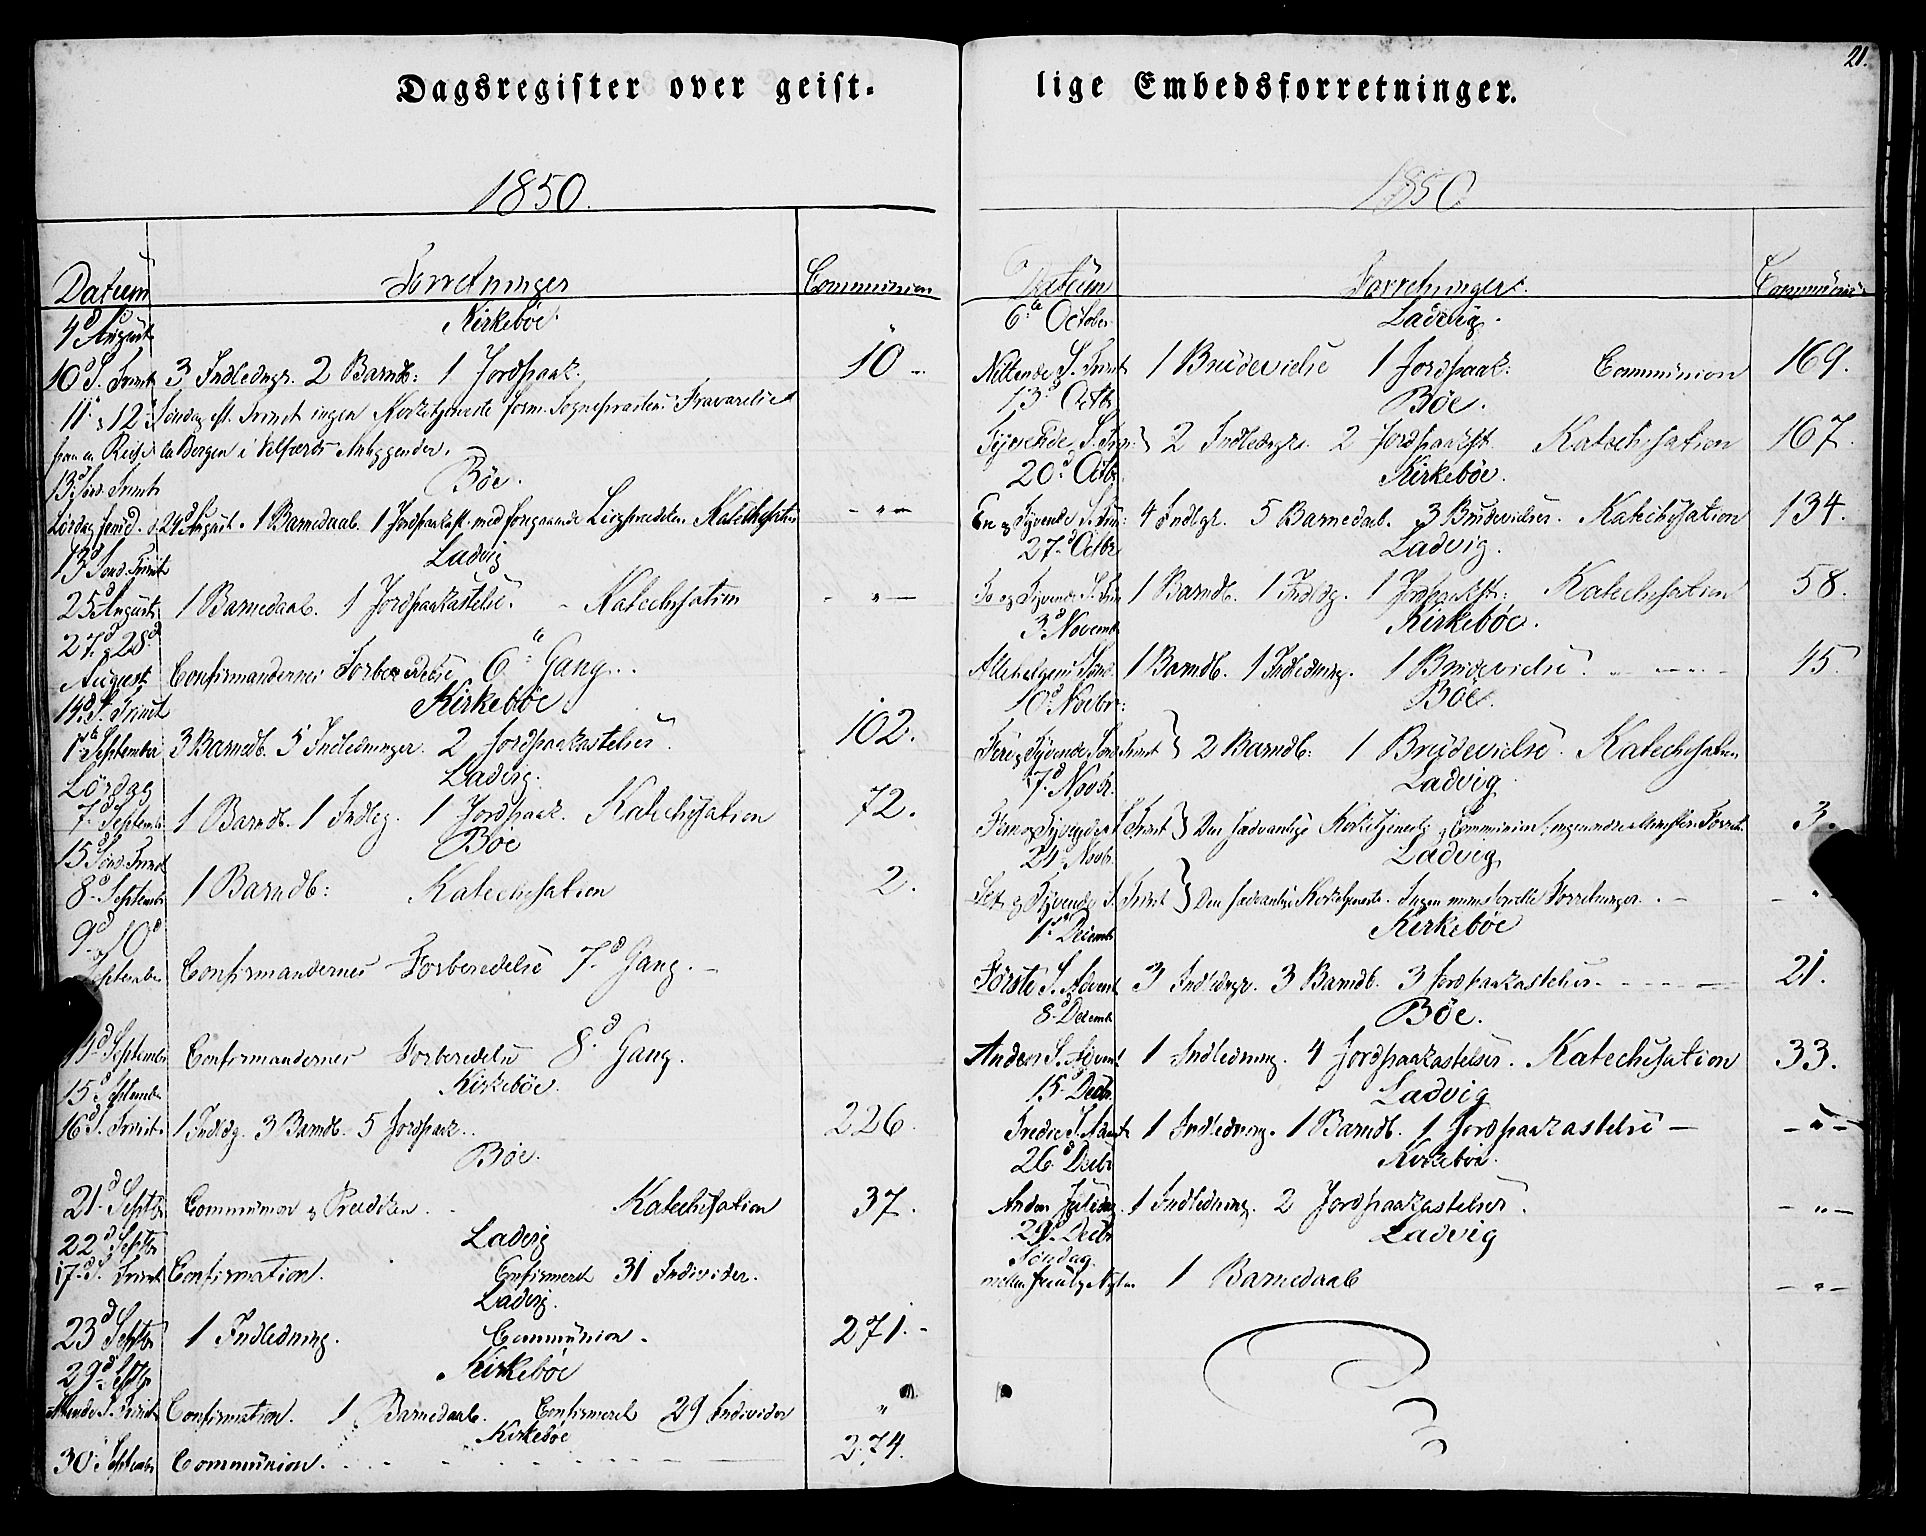 Dagsregister over geist-
1850.
Datum Forretninger Communion
4d August Kirkeböe.
10d S. Trinit 3 Indledngr. 2 Barndb: 1 Jordpaak. 10
11 & 12 Söndag eft. Trinit ingen Kirketjeneste form. Sognepræstens Fraværelse
paa en Reise til Bergen i Velfærds Anliggender.
13d Sönd. Trinit Böe.
Lördag 24d August. 1 Barnedaab. 1 Jordpaakast. med foregaaende Liigprædiken Katechisation - " -
13d Sönd. Trinit Ladvig
25d August 1 Barnedaab. 1 Jordpaakastelse. - Katechisation - " -
27d & 28d
August Confirmandernes Forberedelse 6te Gang.
14d S. Trinit Kirkeböe
1ste September 3 Barndb. 5 Indledninger. 2 Jordpaakastelser. 102.
Lördag Ladvig.
7d Septemb. 1 Barndb. 1 Indleg. 1 Jordpaak. Katechisation 72.
15d Sönd. Trinit Böe
8d Septembr 1 Barndb: Katechisation 2.
9d og 10d
September Confirmandernes Forberedelse 7d Gang.
14d September Confirmandernes Forberedelse 8d Gang.
15d September Kirkeböe.
16d S. Trinit. 1 Indldg. 3 Barndb. 5 Jordpaak. 226.
Böe.
21d Septbr Communion & Prædiken. Katechisation 37.
22d Septbr Ladvig
17d S. Trinit Confirmation. Confirmeret 31 Individer.
Ladvig.
23d Septbr 1 Indledning. Communion. 271.
29d Septbr Kirkeböe
Attende S. Trinit. Confirmation. 1 Barnedaab. Confirmeret 29 Individer "
Kirkeböe
30 Septembr Communion. 274.
21.
lige Embedsforretninger.
1850
Datum Forretninger. Communion
6te October Ladvig.
Nittende S. Trinit 1 Brudevielse 1 Jordpaak: Communion 169.
13d Octbr Böe.
Tyvende S. Trin: 2 Indledngr. 2 Jordpaakst. Katechisation 167.
20d Octbr. Kirkeböe.
En & Tyvende S. Trin: 4 Indlgr. 5 Barnedaab. 3 Brudevielser. Katechisation 134.
27d Octbr Ladvig.
To og Tyvende S. Trin 1 Barndb. 1 Indldg. 1 Jordpaakst: Katechisation 58.
3d Novemb Kirkeböe.
Allehelgens Sönd. 1 Barndb. 1 Indledning. 1 Brudevielse. 15.
10d Novbr: Böe.
Tre & Tyvende Sönd Trinit } 2 Barndb: 1 Brudevielse. Katechisation
17d Novbr. Ladvig
Fire & Tyvende S. Trinit } Den sædvanlige Kirketjeneste & Communion, ingen andre ministr. Forretn. 3.
24 Novb. Ladvig
& Tyvende S. Trinit } Den sædvanlige Kirketjeneste. Ingen ministerielle Forretninger. - "
1ste Decemb Kirkeböe
Förste S. Advent 3 Indledngr. 3 Barndb. 3 Jordpaakastelser. 21.
8d Decemb Böe.
Anden S. Advent 1 Indledning. 4 Jordpaakastelser. Katechisation 33.
15d Decbr. Ladvig
Tredie S. Advent 1 Indledning. 1 Barndb. 1 Jordpaakastelse - - " -
26d Decbr Kirkeböe.
Anden Juledag. 1 Indledning. 2 Jordpaakastelser. - " -
29d Decbr Ladvig
Söndag
mellem Juul & Nytaar 1 Barnedaab - " -